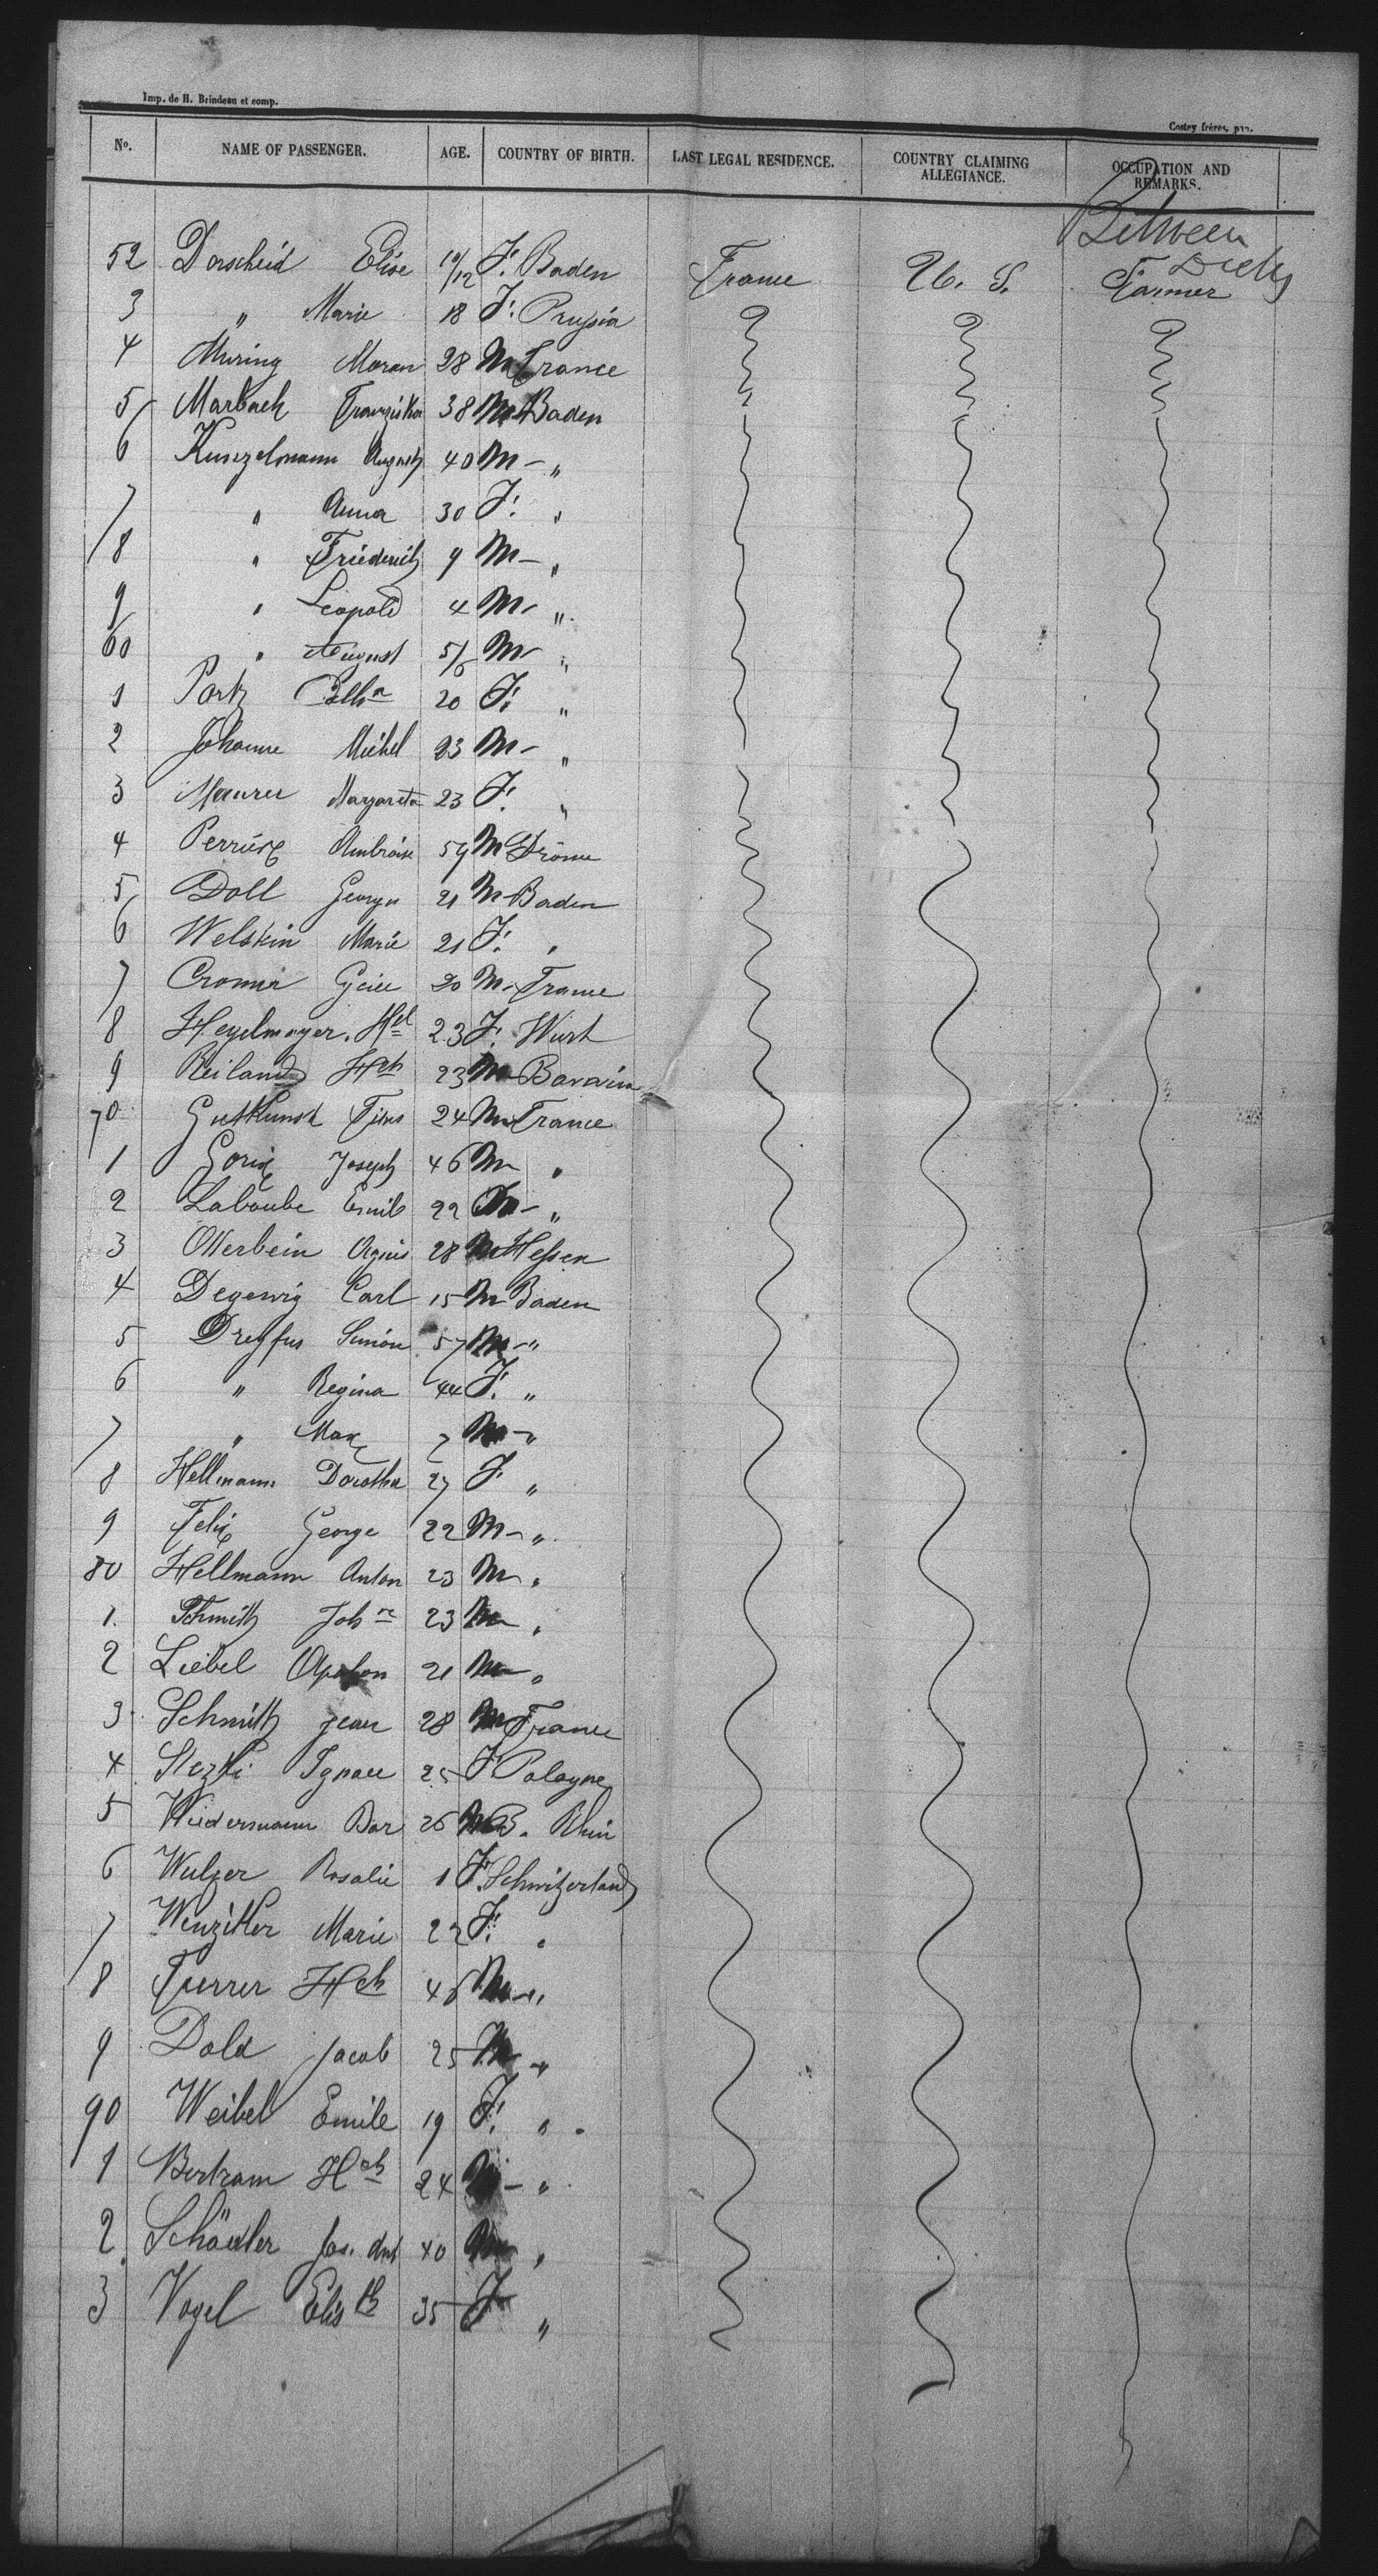 Imp. de H. Brindeau et comp.
Costey frères, pap.
No. NAME OF PASSENGER. AGE. COUNTRY OF BIRTH. LAST LEGAL RESIDENCE. COUNTRY CLAIMING ALLEGIANCE. OCCUPATION AND REMARKS.
Between
Decks
52 Dorscheid Elise 10/12 F. Baden France U. S. Farmer
3 " Marie 18 F. Prussia
4 Muring Moran 28 M France
5 Marbach Franziska 38 M Baden
6 Kunzelmann August 40 M - "
7 " Anna 30 F. "
8 " Friederich 9 M - "
9 " Leopold 4 M - "
60 " August 5/6 M - "
1 Portz 20 F. "
2 Johanne Michel 23 M - "
3 Maurer Margareta 23 F. "
4 Perrieux Ambroise 59 M Drôme
5 Doll George 21 M - Baden
6 Welskin Marie 21 F. "
7 Cromer 20 M - France
8 Hegelmayer 23 F. Wurt
9 Reiland Hch 23 M - Bavaria
70 Gutkunst 24 M France
1 Gorix Joseph 46 M "
2 Laboube Emile 22 M - "
3 Otterbein Agnis 28 M Hessen
4 Degewig Carl 15 M Baden
5 Dreyfus Simon 57 M - "
6 " Regina 44 F. "
7 " Max 7 M - "
8 Hellmann Dorothea 27 F "
9 Felix George 22 M - "
80 Hellmann Anton 23 M "
1. Schmitz Johne 23 M "
2 Liebel 21 M "
3 Schmitz Jean 28 M France
4 Slezki Ignace 25 F Pologne
5 Wiedermann Bar 26 M B. Rhin
6 Wulzer Rosalie 1 F. Schwitzerland
7 Wenziker Marie 22 F. "
8 Furrer Hch 46 M - "
9 Dold Jacob 25 M - "
90 Weibel Emile 19 F. "
1 Bertram Hch 24 M - "
2 Schädler Jos. Ant 40 M "
3 Vogel Elisth 35 F "